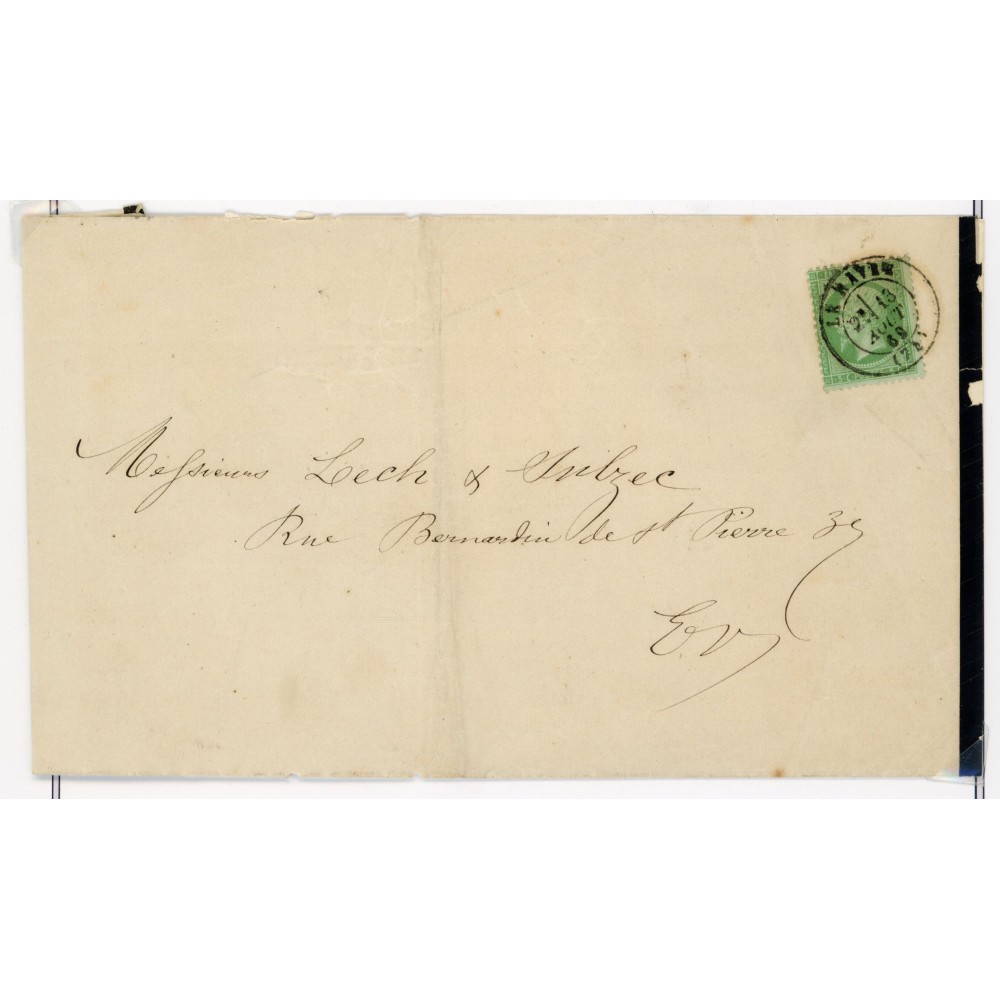 LE HAVRE
2E/ 13
AOUT
69
(74)
Messieurs Lech &
Rue Bernardin de St Pierre
E.V.